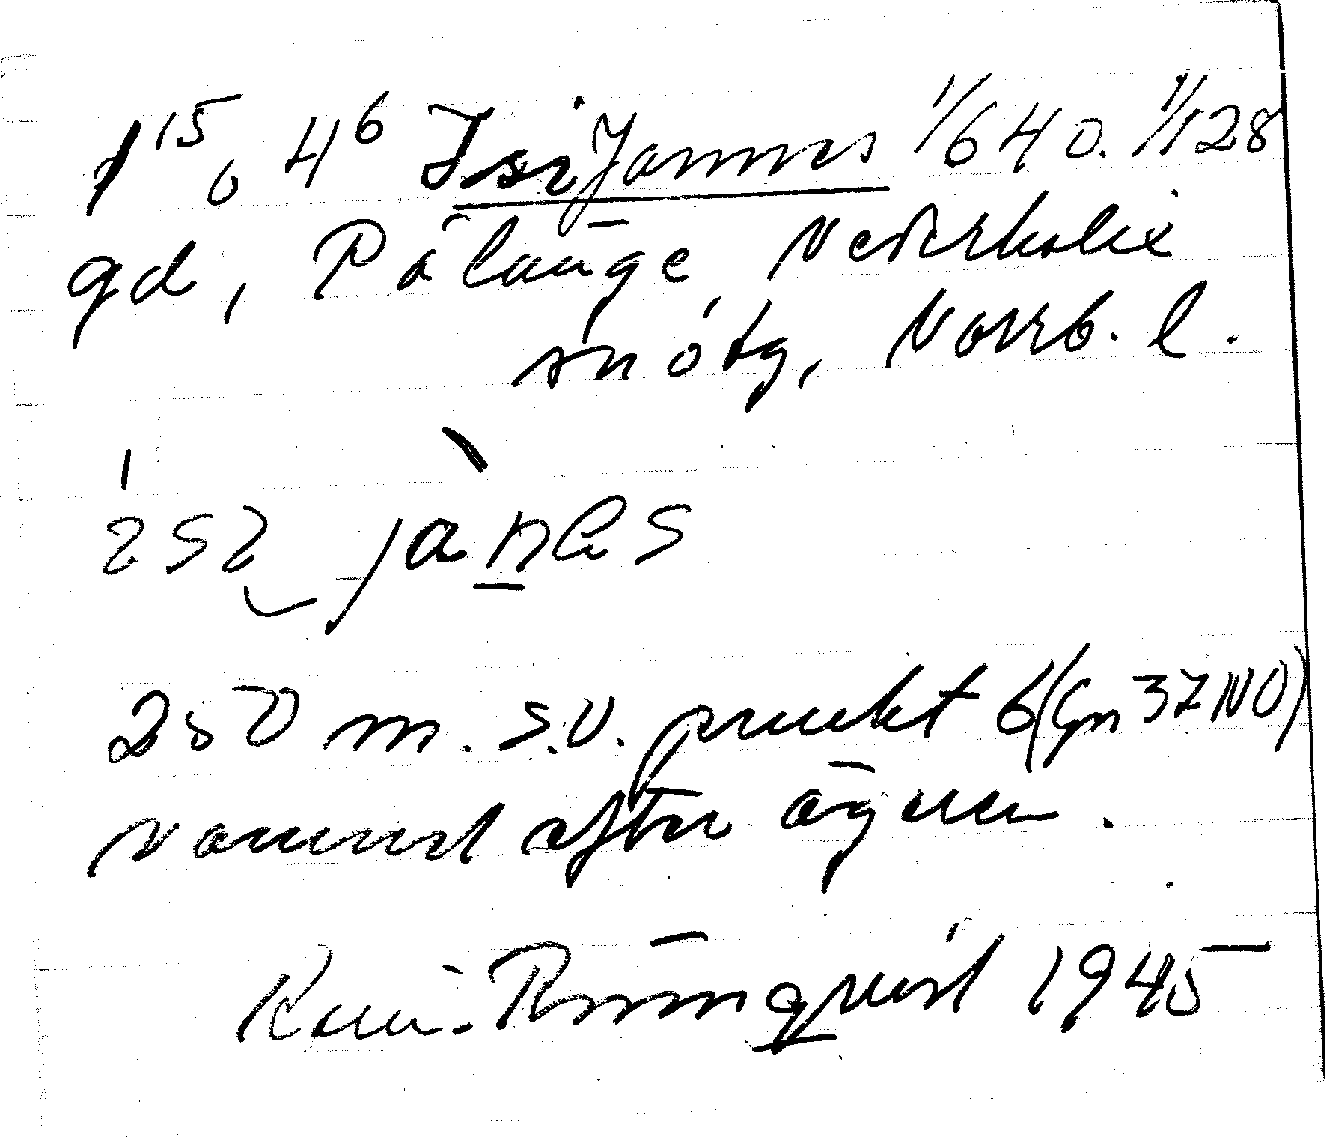 1¹⁵, 4⁶ Isijannes 1/640. 1/128
gd, Pålänge, Nederkalix
sn ó tg, Norrb. l.
ɪsɪ jànɛs
250 m. S.V. punkt 6 (Gn 37 NO)
namnet efter ägaren.
Rönnqvist 1945